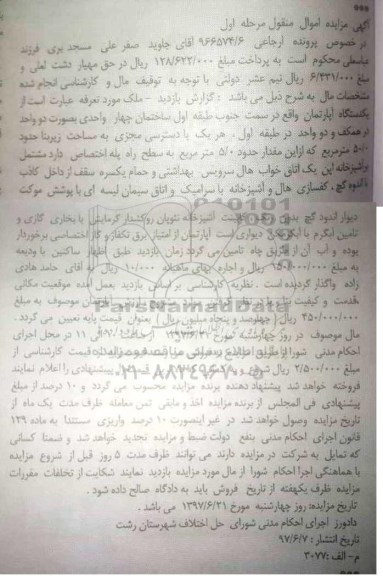 آگهی مزایده اموال منقول مرحله اول
در خصوص پرونده اجرایی ۹۶۶۵۷۴/۶ آقای جاوید صفر علی مسجد بری فرزند
عباسعلی محکوم است به پرداخت مبلغ ۱۲۸/۶۲۲/۰۰۰ ریال در حق مهیار دشت لعلی و
مبلغ ۶/۴۳۱/۰۰۰ ریال نیم عشر دولتی با توجه به توقیف مال و کارشناسی انجام شده
مشخصات مال به شرح ذیل می باشد : گزارش بازدید – ملک مورد تعرفه عبارت است از
یکدستگاه آپارتمان واقع در سمت جنوب طبقه اول ساختمان چهار واحدی بصورت دو واحد
در همکف و دو واحد در طبقه اول . هر یک با دسترسی مجزی به مساحت زیربنا حدود
۵۰/۰ مترمربع که ازاین مقدار حدود ۵/۰ متر مربع به سطح راه پله اختصاص دارد مشتمل
بر آشپزخانه اپن یک اتاق خواب هال سرویس بهداشتی و حمام یکسره سقف از داخل کاذب
با اندود گچ ، کفسازی هال و آشپزخانه با سرامیک و اتاق سیمان لیسه ای با پوشش موکت
دیوار اندود گچ بدنه آشپزخانه نئوپان روکشدار گرمایش با بخاری گازی و
تامین آبگرم با آبگرمکن دیواری است آپارتمان از امتیاز برق تکفاز و گاز اختصاصی برخوردار
بوده و آب آن از طریق چاه تامین می گردد زمان بازدید طبق اظهار ساکنین با ودیعه
به مبلغ ۱۵۰/۰۰۰/۰۰۰ ریال و اجاره بهای ماهیانه ۱۰/۰۰۰ ریال به آقای حامد هادی
زاده واگذار گردیده است . نظریه کارشناسی بر اساس بازدید بعمل آمده موقعیت مکانی
قدمت و کیفیت بنا آپارتمان موصوف به مبلغ
۴۵۰/۰۰۰/۰۰۰ ریال (چهارصد و پنجاه میلیون ریال) بعنوان قیمت پایه تعیین می گردد .
مال موصوف در روز چهارشنبه مورخ ۱۳۹۷/۶/۲۱ از ساعت ۱۰ الی ۱۱ در محل اجرای
احکام مدنی شورا از طریق مزایده قیمت کارشناسی از
مبلغ ۴/۵۰۰/۰۰۰ ریال شروع و پیشنهادی را اعلام نمایند
فروخته خواهد شد پیشنهاد دهنده برنده مزایده محسوب می گردد و ۱۰ درصد از مبلغ
پیشنهادی فی المجلس از برنده مزایده اخذ و مابقی ثمن معامله ظرف مدت یک ماه از
تاریخ مزایده وصول خواهد شد در غیر اینصورت ۱۰ درصد واریزی مستندا به ماده ۱۲۹
قانون اجرای احکام مدنی بنفع دولت ضبط و مزایده تجدید خواهد شد و ضمنا کسانی
که تمایل به شرکت در مزایده دارند می توانند ظرف مدت ۵ روز قبل از شروع مزایده
با هماهنگی اجرا احکام شورا از مال مورد مزایده بازدید نمایند شکایت از تخلفات مقررات
مزایده ظرف یکهفته از تاریخ فروش باید به دادگاه صالح داده شود .
تاریخ مزایده: روز چهارشنبه مورخ ۱۳۹۷/۶/۲۱ می باشد .
دادورز اجرای احکام مدنی شورای حل اختلاف شهرستان رشت
تاریخ انتشار : ۹۷/۶/۷
م – الف : ۳۰۷۷
ParsNamadData
۰۲۱-۸۸۳۴۹۶۷۰